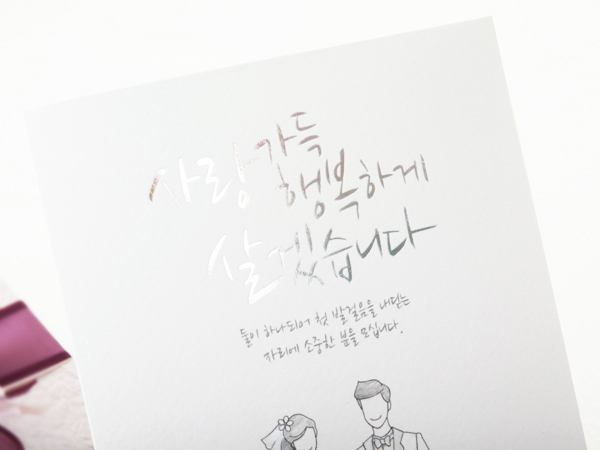 사랑가득
행복하게
살겠습니다
둘이 하나되어 첫 발걸음을 내딛는
자리에 소중한 분을 모십니다.